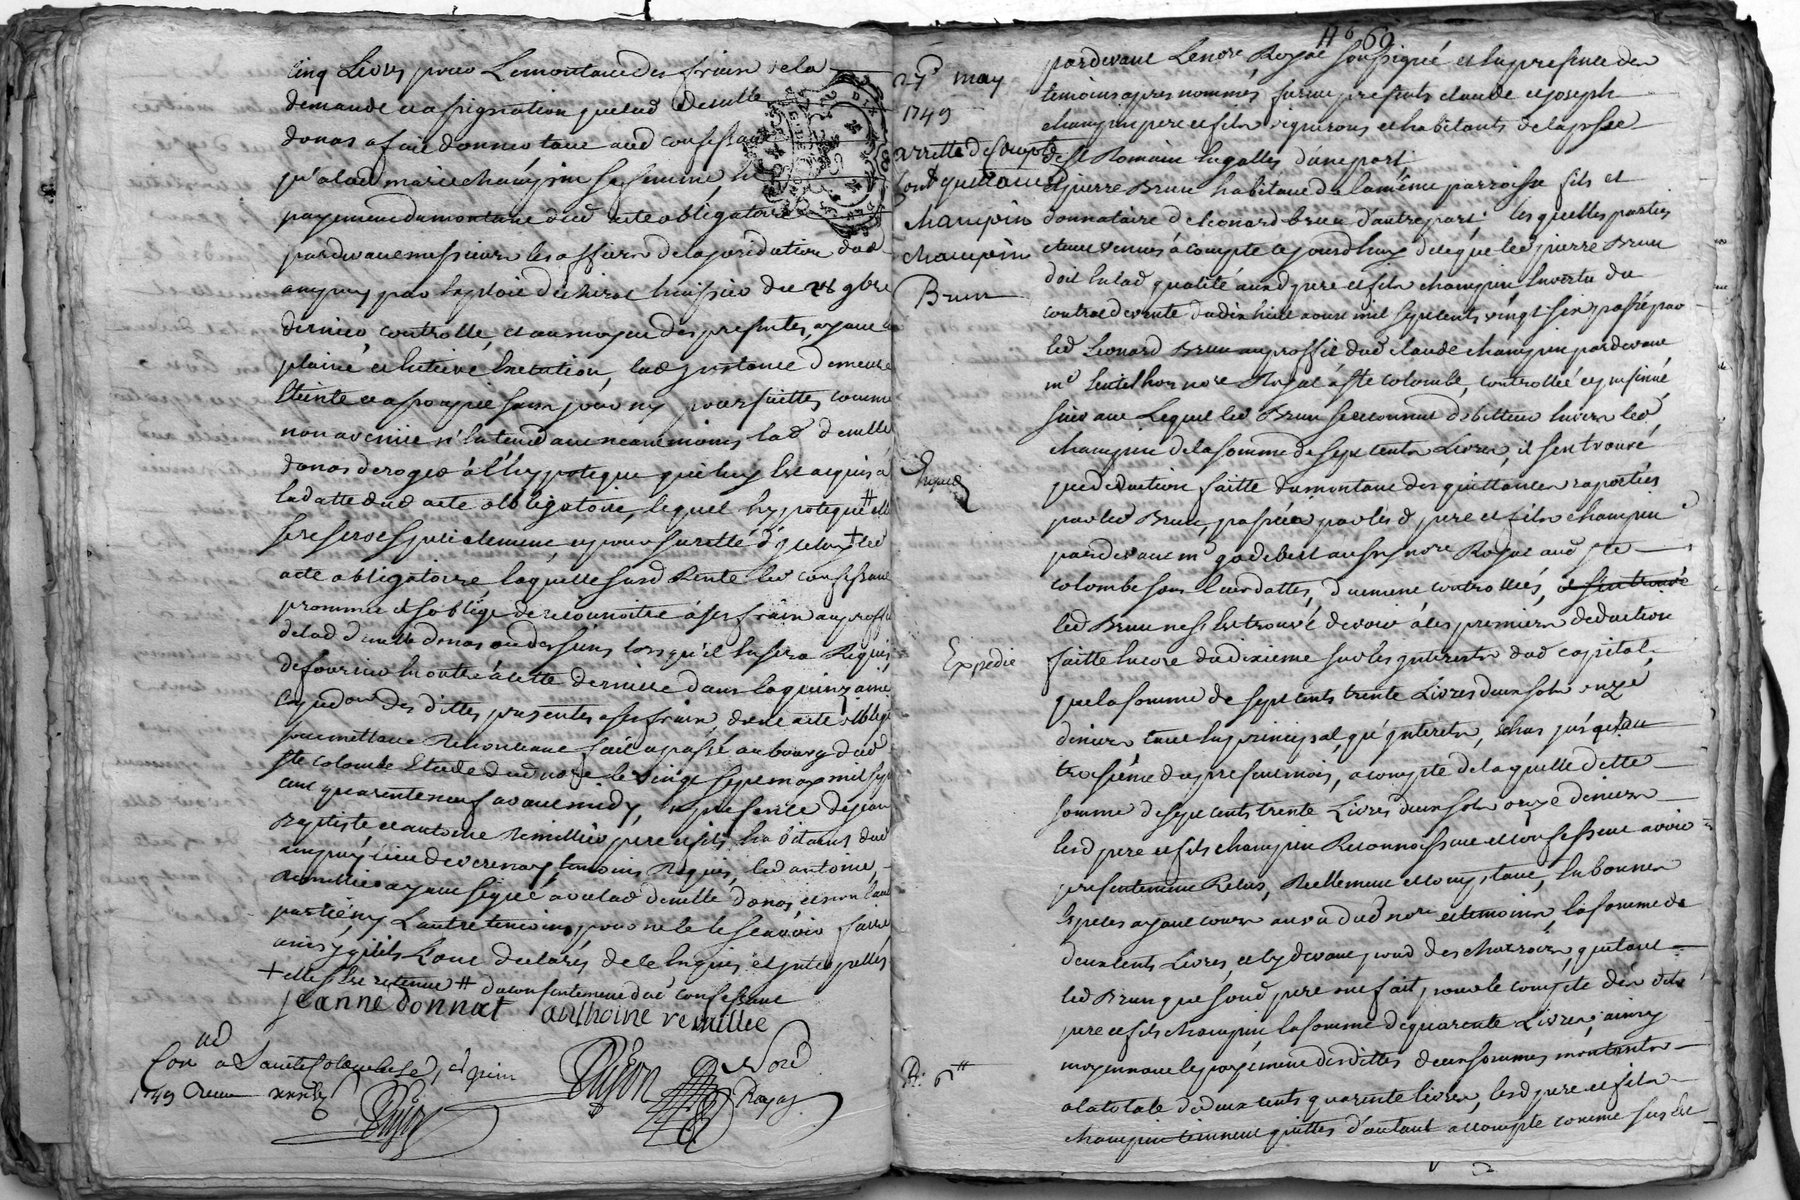 cinq Livres pour Le montant des fraix de la
demande et assignation que lad demlle
donas a fait donner tant aud confessant
qu'a lad marie champin sa femme, en
payement du montant dud acte obligatoire
pardevant messieurs les officiers de la juridiction dud
ampuy par exploit de huissier du 28 9bre
dernier, controllé, et au moyen des presentes, ayant
plaine et entiere execution, lad jnstance demeure
Eteinte et assoupie sans pouvoir poursuittes comme
non avenüe n'entend au neanmoins lad demlle
donas deroger à l'hypoteque qui luy est acquis à
la datte dud acte obligatoire, lequel hypoteque # elle
se reserve expressement, et pour sureté d'jceluy + led
acte obligatoire, laquelle susd Rente led confessant
promet et s'oblige de reconnoitre à ses fraix au proffit
de lad demlle donas ou des siens lorsqu'il en sera Requis,
de fournir montre à cette derniere dans la quinzaine
expedon des dittes presentes a ses fraix, dont acte obligé
soumettant Renonceant fait et passé au bourg dud
ste colombe Etude dud nore le vingt sept may mil sept
cent quarente neuf avant midy, en presence de jean
Baptiste et antoine Remillier pere et fils, habitants dud
ampuy lieu de verenay, temoins Requis, led antoine
Remillier ayant signé avec lad demlle donas, et non l'autre
partie, ny L'autre temoin, pour ne le sçavoir faire
ainsy qu'ils L'ont declarés de ce enquis et jnterpellés
+ elle s'est retenue # du consentement dud confessant
jeanne donnat anthoine remillee
Con a Sainte Colombe le juin
1749 Reçu
Dujon Nore
Royal
Dujon
No 60
27e may
1749
arretté de compte
cont quittance
champin
champin
Brun
Expedié
pardevant Le nore Royal soussigné et en presence des
temoins apres nommés, furent presents claude et joseph
champin pere et fils vignerons et habitants de la psse
de st Romain en galles d'une part
et pierre Brun habitant de la même parroisse fils et
donnataire de Leonard brun d'autre part. lesquelles parties
etant venus à compte ce jourd'huy de ce que led pierre Brun
doit en lad qualité ausd pere et fils champin en vertu du
contract de vente du dix huit aoust mil sept cents vingt six passé par
led Leonard Brun au proffit dud claude champin pardevant
me nore Royal à ste colombe, controllé et jnsinué,
suivant Lequel led Brun se reconnut debitteur envers led
champin de la somme de sept cents Livres, il s'en trouvé
que deduction faitte du montant des quittances raportées
par led Brun, passées par lesd pere et fils champin
pardevant me godebert aussy nore Royal aud ste
colombe sous leurs dattes, duement controllées, il s'en trouvé
led Brun ne s'est trouvé devoir à ces premiers deduction
faitte encore du dixieme sur les jnterests dud capital
que la somme de sept cents trente Livres d'un sols onze
deniers tant en principal, qu'jnterests, Echus jusqu'au
troisieme du present mois, a compte de laquelle ditte
somme de sept cents trente Livres d'un sols onze deniers
lesd pere et fils champin Reconnoissent et confessent avoir
presentement Reçus, Reellement et comptant, En bonnes
Especes ayant cours au vû dud nore et temoins, la somme de
deux cents Livres, et cy devant pour des charrois, quitant
led Brun que soud pere ont fait pour le compte desdits
pere et fils champin, la somme de quarente Livres, ainsy
moyennant le payement desdittes deux sommes montants
a la totale de deux cents quarente livres, lesd pere et fils
champin tiennent quittes d'autant a compte comme sus est